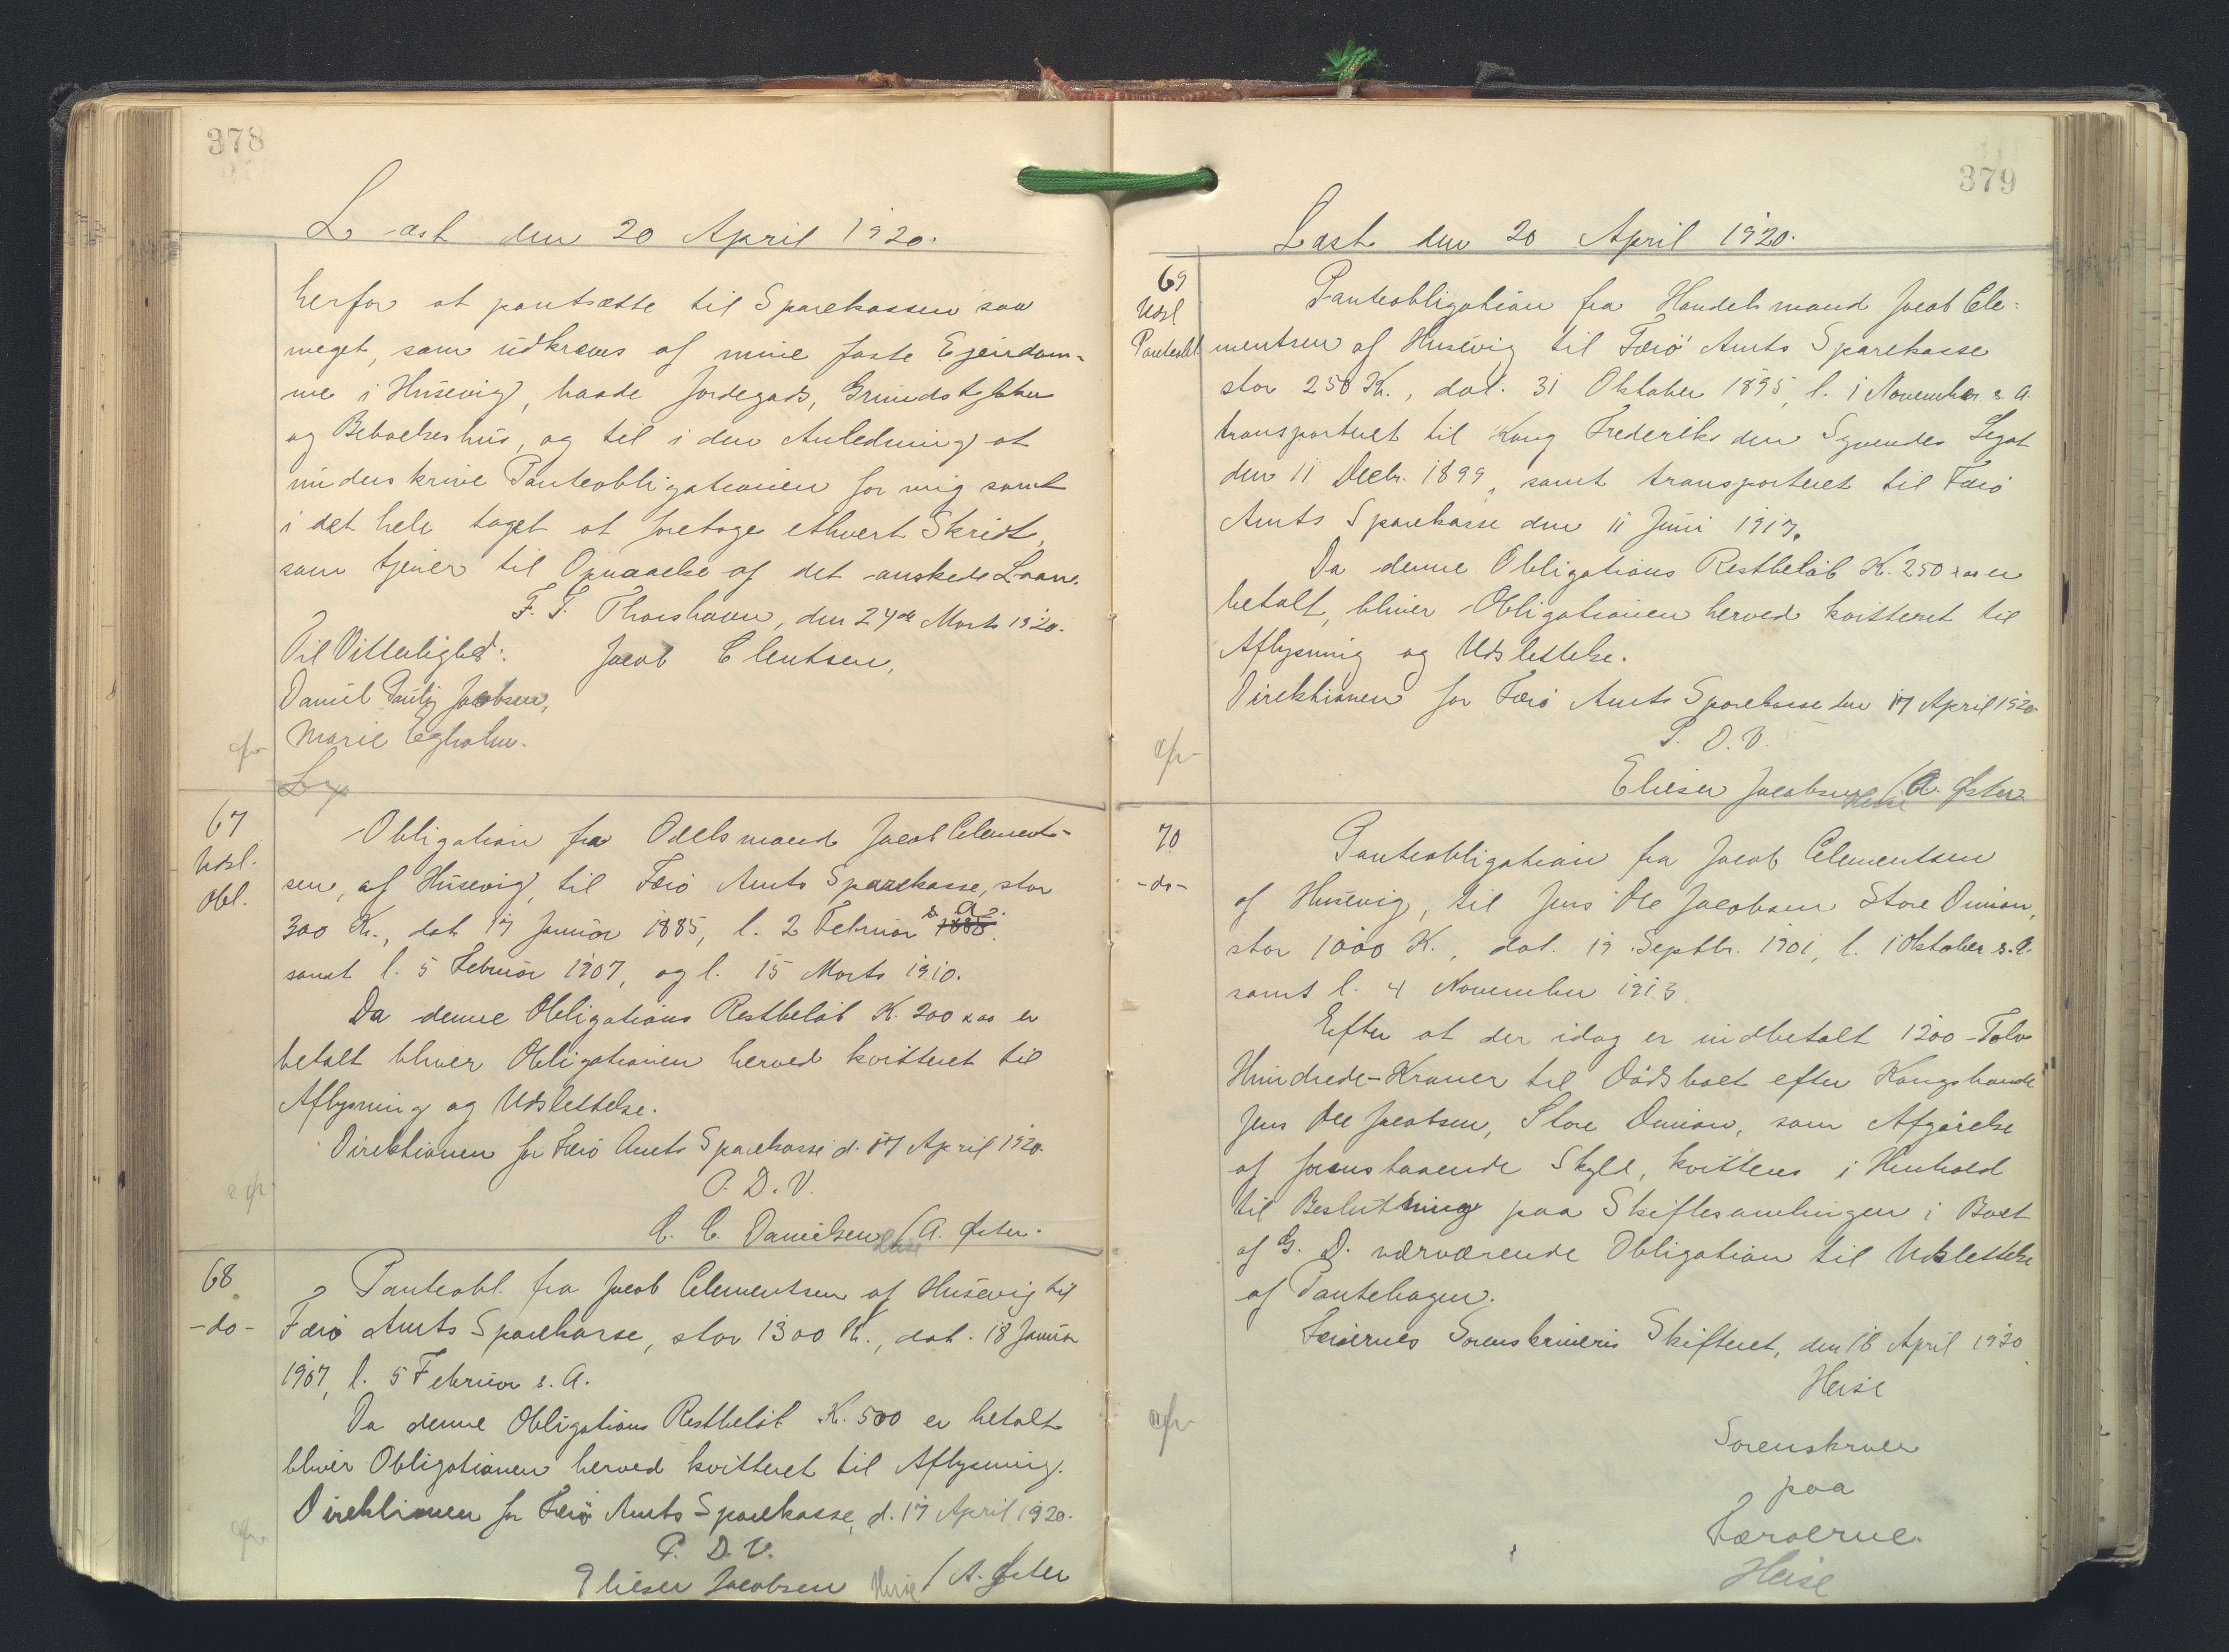 378
Læst den 20 April 1920.
herfor at pantsætte til Sparekassen saa
meget, som udkræves af mine faste Ejendom-
me i Husevig, baade Jordegods, Grundstykker
og Beboelseshus, og til i den Anledning at
underskrive Panteobligationen for mig samt
i det hele taget at foretage ethvert Skridt,
som tjener til Opnaaelse af det ønskede Laan.
F. T. Thorshavn, den 24de Marts 1920.
Til Vitterlighed: Jacob Clentsen,
Daniel Pauli Jacobsen,
Marie Egholm.
cfr
67
Udsl.
Obl.
Obligation fra Odelsmand Jacob Clement-
sen, af Husevig, til Færø Amts Sparekasse, stor
300 Kr., dat 17 Januar 1885, l. 2 Februar 1885 s. A.
samt l. 5 Februar 1907, og l. 15 Marts 1910.
Da denne Obligations Restbeløb K. 200 x oo er
betalt bliver Obligationen herved kvitteret til
Aflysning og Udslettelse.
Direktionen for Færø Amts Sparekasse d. 17 April 1920.
P. D. V.
C. C. Danielsen / A. Øster.
Heise
cfr
68.
-do-
Panteobl. fra Jacob Clementsen af Husevig til
Færø Amts Sparekasse, stor 1300 Kr., dat. 18 Januar
1907, l. 5 Februar s. A.
Da denne Obligations Restbeløb K. 500 er betalt
bliver Obligationen herved kvitteret til Aflysning.
Direktionen for Færø Amts Sparekasse, d. 17 April 1920.
P. D. V.
Elieser Jacobsen Heise / A. Øster
cfr.
379
Læst den 20 April 1920.
69
Udsl
Panteobl
Panteobligation fra Handelsmand Jacob Cle-
mentsen af Husevig til Færø Amts Sparekasse
stor 250 Kr., dat. 31 Oktober 1895, l. 1 November s. A.
transporteret til Kong Frederiks den Syvendes Legat
den 11 Decbr. 1899, samt transporteret til Færø
Amts Sparekasse den 11 Juni 1917.
Da denne Obligations Restbeløb K. 250 x oo er
betalt, bliver Obligationen herved kvitteret til
Aflysning og Udslettelse.
Direktionen for Færø Amts Sparekasse den 17 April 1920
P. D. V.
Elieser Jacobsen / A. Øster
Heise
cfr
70
-do-
Panteobligation fra Jacob Clementsen
af Husevig, til Jens Ole Jacobsen Store Dimon,
stor 1000 K., dat. 19 Septbr. 1901, l. 1 Oktober s. A.
samt l. 4 November 1913.
Efter at der idag er indbetalt 1200 - Tolv
Hundrede - Kroner til Dødsboet efter Kongsbonde
Jens Ole Jacobsen, Store Dimon, som Afgørelse
af foranstaaende Skyld, kvitteres i Henhold
til Beslutning paa Skiftesamlingen i Boet
af G. D. nærværende Obligation til Udslettelse
af Pantebogen.
Færøernes Sorenskriveris Skifteret, den 16 April 1920
Heise
Sorenskriver
paa
Færøerne.
Heise
cfr